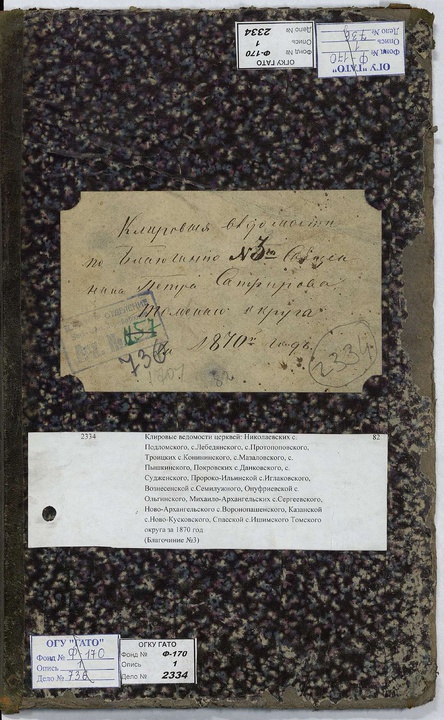 ОГКУ ГАТО
Фонд № Ф-170
Опись 1
Дело № 2334
ОГУ "ГАТО"
Фонд № Ф-170
Опись 1
Дело № 738
Клировыя ведомости
по Благочинію № 3го Священ
ника Петра
Томскаго округа
1870го годъ
738
2334
82
2334
Клировые ведомости церквей: Николаевских с.
82
Подломского, с.Лебедянского, с.Протопоповского,
Троицких с.Конининского, с.Мазаловского, с.
Пышкинского, Покровских с.Данковского, с.
Судженского, Пророко-Ильинской с.Иглаковского,
Вознесенской с.Семилужного, Онуфриевской с
Ольгинского, Михаило-Архангельских с.Сергеевского,
Ново-Архангельского с.Воронопашенского, Казанской
с.Ново-Кусковского, Спасской с.Ишимского Томского
округа за 1870 год
(Благочиние №3)
ОГУ "ГАТО"
Фонд № Ф-170
Опись 1
Дело № 738
ОГКУ ГАТО
Фонд № Ф-170
Опись 1
Дело № 2334